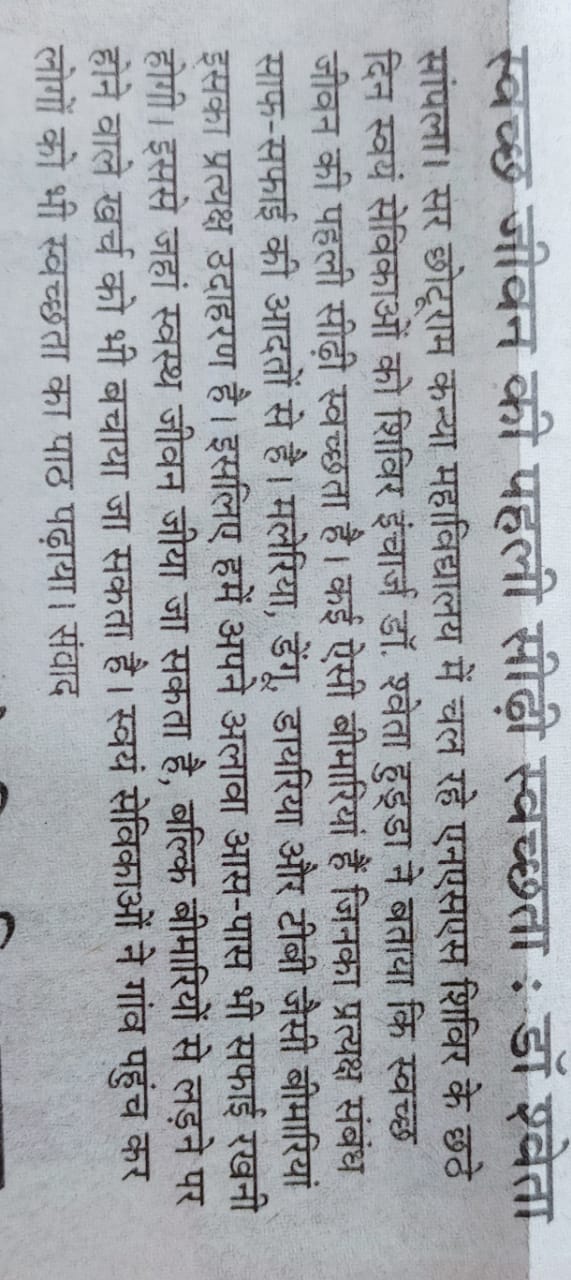 स्वच्छ जीवन की पहली सीढ़ी स्वच्छता : डॉ श्वेता
सांपला। सर छोटूराम कन्या महाविद्यालय में चल रहे एनएसएस शिविर के छठे
दिन स्वयं सेविकाओं को शिविर इंचार्ज डॉ. श्वेता हुड्डा ने बताया कि स्वच्छ
जीवन की पहली सीढ़ी स्वच्छता है। कई ऐसी बीमारियां हैं जिनका प्रत्यक्ष संबंध
साफ-सफाई की आदतों से है। मलेरिया, डेंगू, डायरिया और टीबी जैसी बीमारियां
इसका प्रत्यक्ष उदाहरण है। इसलिए हमें अपने अलावा आस-पास भी सफाई रखनी
होगी। इससे जहां स्वस्थ जीवन जीया जा सकता है, बल्कि बीमारियों से लड़ने पर
होने वाले खर्च को भी बचाया जा सकता है। स्वयं सेविकाओं ने गांव पहुंच कर
लोगों को भी स्वच्छता का पाठ पढ़ाया। संवाद